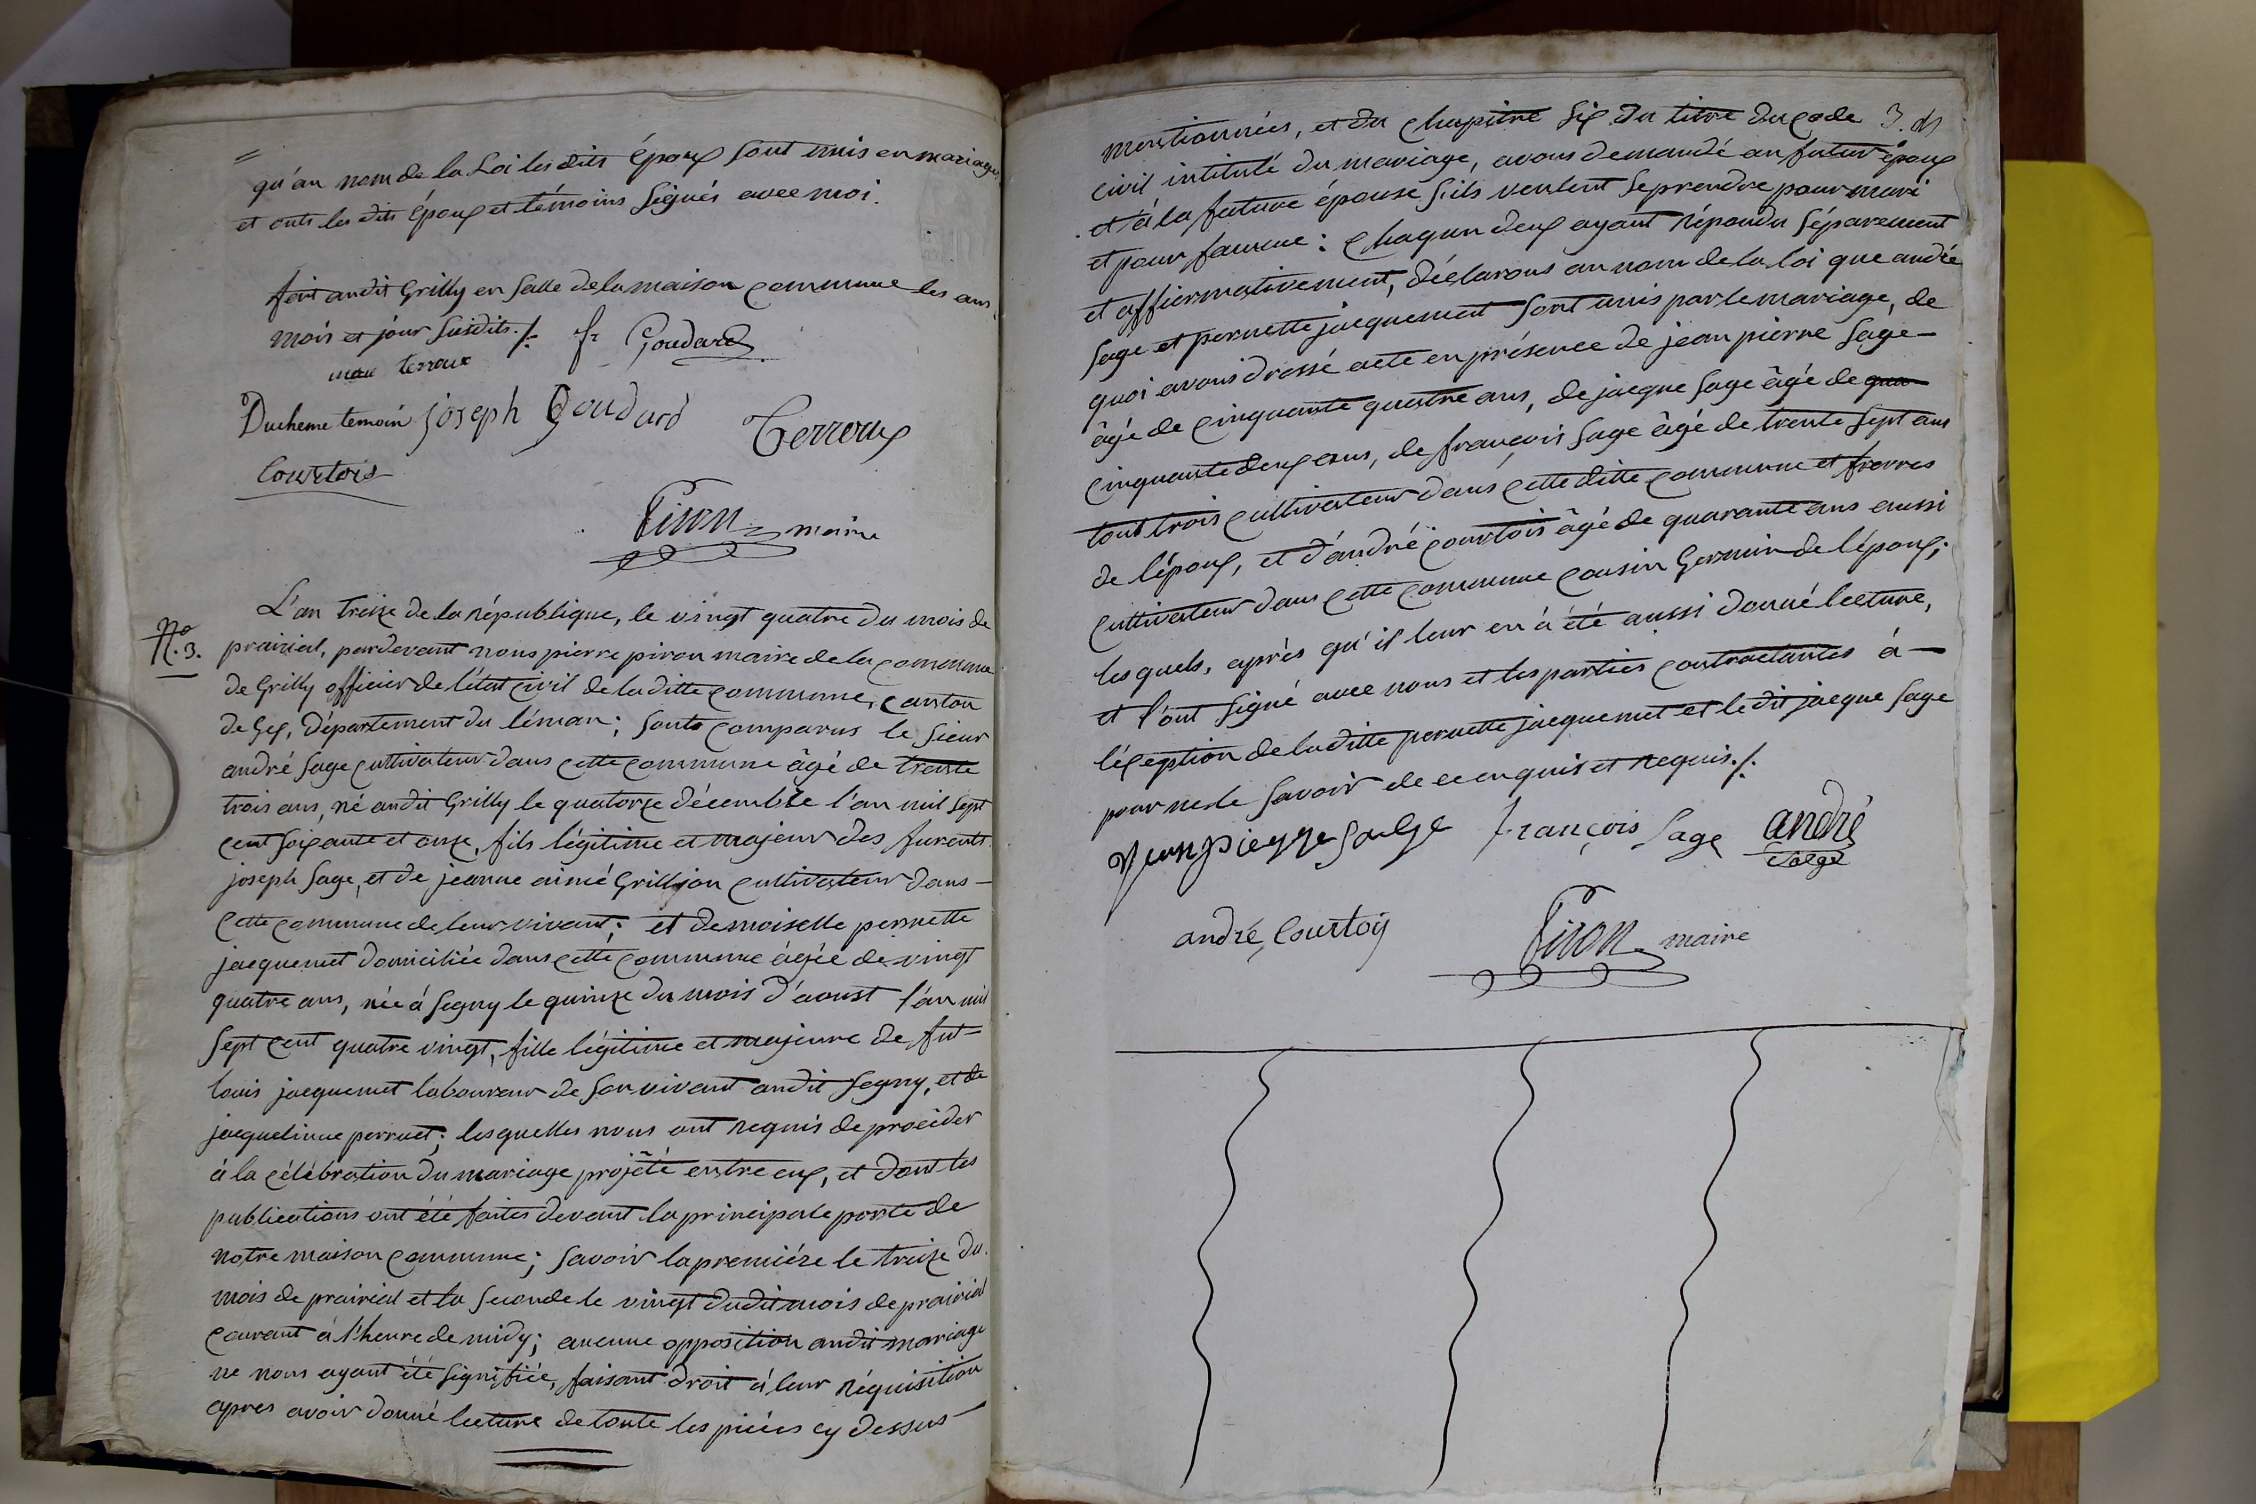 qu'au nom de la Loi les dits époux sont unis en mariage,
et onts les dits époux et témoins signés avec moi.
fait audit Grilly en salle de la maison commune les ans,
mois et jour susdits ./.
fr Goudard
terroux
Ducheme temoin joseph Goudard
Terroux
Courtois
Piron maire
N.º 3.
L'an treize de la république, le vingt quatre du mois de
prairial, pardevant nous pierre piron maire de la commune
de Grilly officier de l'état civil de la ditte commune, canton
de Gex, Département du léman; sonts comparus le sieur
andré sage cultivateur dans cette commune âgé de trente
trois ans, né audit Grilly le quatorze décembre l'an mil sept
cent soixante et onze, fils légitime et majeur des furents
joseph sage, et de jeanne aimé Grilljon cultivateur dans
cette commune de leur vivant; et demoiselle pernette
jacquemet domiciliée dans cette commune âgée de vingt
quatre ans, née á segny le quinze du mois d'áoust l'an mil
sept cent quatre vingt, fille légitime et majeure de fut
louis jacquemet laboureur de son vivant audit segny, et de
jacquelinne perruet; lesquelles nous ont requis de procéder
á la célébration du mariage projété entre eux, et dont les
publications ont été faites devant la principale porte de
notre maison commune; savoir la premiére le treize du
mois de prairial et la seconde le vingt dudit mois de prairial
courant á l'heure de midy; aucune opposition audit mariage
ne nous ayant été signifiée, faisant droit á leur réquisition
apres avoir donné lecture de toute les piéces cy dessus
mentionnées, et du chapitre six du titre du code
3.
civil intitulé du mariage, avons demandé au futur époux
et á la future épouse s'ils veulent se prendre pour mari
et pour famme: chaqun deux ayant répondu séparement
et affirmativement, déclarons au nom de la loi que andré
sage et pernette jacquemet sont unis par le mariage, de
quoi avons dressé acte en présence de jean pierre sage
âgé de cinquante quatre ans, de jacque sage âgé de qua
cinquante deux ans, de françois sage âgé de trente sept ans
tout trois cultivateur dans cette ditte commune et frerres
de l'époux, et d'andré courtois âgé de quarante ans aussi
cultivateur dans cette commune cousin Germain de l'époux;
lesquels, après qu'il leur en á été aussi donné lecture,
et l'ont signé avec nous et les parties contractantes á
l'éxeption de la ditte pernette jacquemet et le dit jacque sage
pour ne le savoir de ce enquis et requis ./.
Jean pierre sage françois sage andré
sage
andré, Courtois
Piron maire